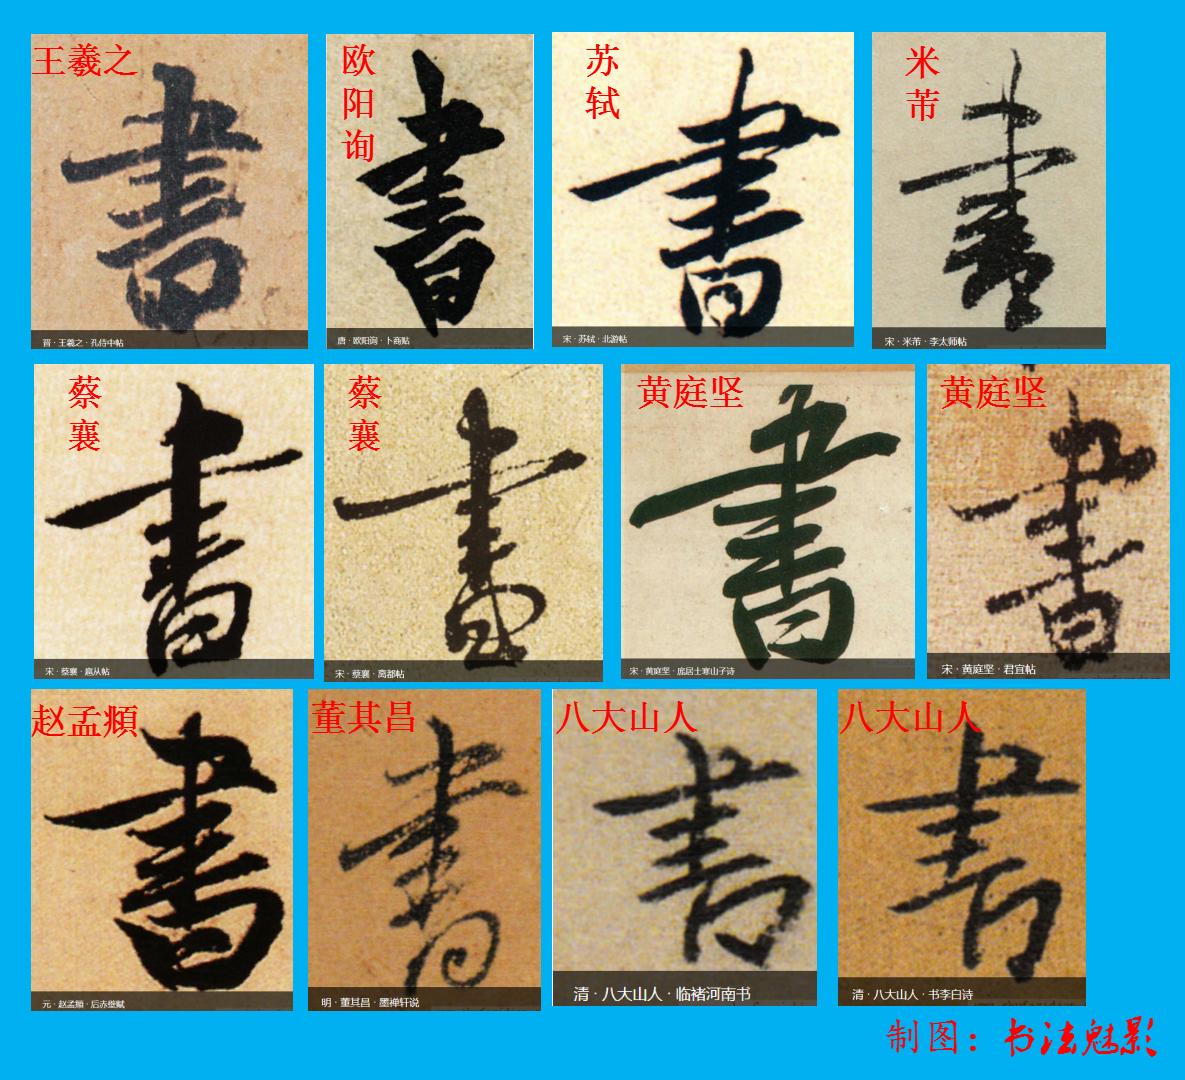 王羲之
書
晋 · 王羲之 · 孔侍中帖
欧阳询
書
唐 · 欧阳询 · 卜商贴
苏轼
書
宋 · 苏轼 · 北游帖
米芾
書
宋 · 米芾 · 李太师帖
蔡襄
書
宋 · 蔡襄 · 扈从帖
蔡襄
書
宋 · 蔡襄 · 离都帖
黄庭坚
書
宋 · 黄庭坚 · 庞居士寒山子诗
黄庭坚
書
宋 · 黄庭坚 · 君宜帖
赵孟頫
書
元 · 赵孟頫 · 后赤壁赋
董其昌
書
明 · 董其昌 · 墨禅轩说
八大山人
書
清 · 八大山人 · 临褚河南书
八大山人
書
清 · 八大山人 · 书李白诗
制图：书法魅影